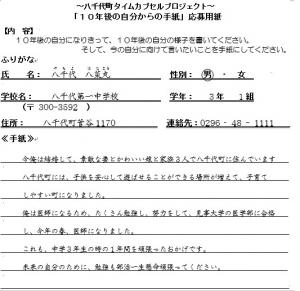 ～八千代町タイムカプセルプロジェクト～
「１０年後の自分からの手紙」応募用紙
【内　容】
１０年後の自分になりきって、１０年後の自分の様子を書いてください。
そして、今の自分に向けて言いたいことを手紙にしてください。
ふりがな
氏　名：　八千代　八菜丸　性別：　男・女
学校名：　八千代第一中学校　学年：　３年　１組
（〒 300-3592　）
住所：　八千代町菅谷1170　連絡先：0296‐48‐1111
≪手紙≫
今俺は結婚して、素敵な妻とかわいい娘と家族３人で八千代町に住んでいます
八千代町には、子供を安心して遊ばせることができる場所が増えて、子育て
しやすい町になりました。
俺は医師になるため、たくさん勉強し、努力をして、見事大学の医学部に合格
し、今年の春、医師になりました。
これも、中学３年生の時の１年間を頑張ったおかげです。
未来の自分のために、勉強も部活一生懸命頑張ってください。